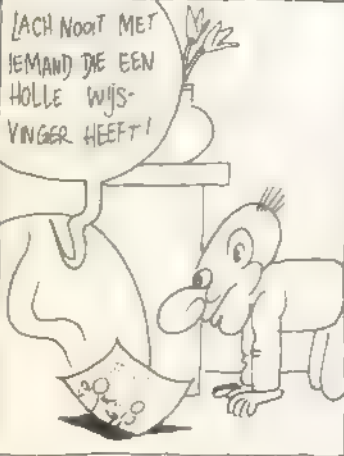 LACH NOOIT MET
IEMAND DIE EEN
HOLLE WIJS-
VINGER HEEFT!